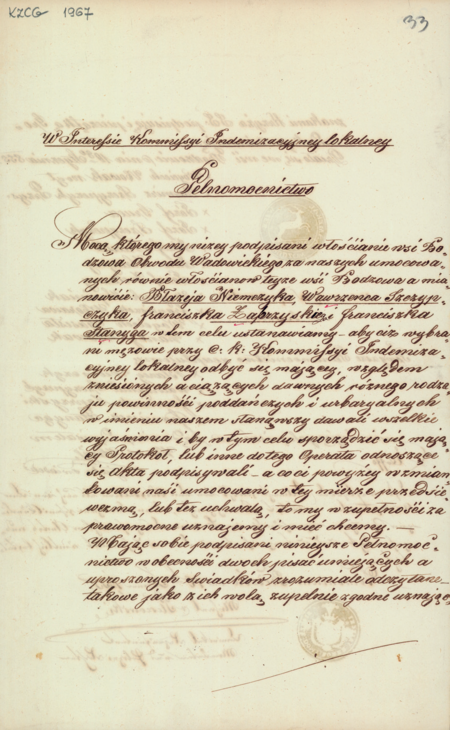 KZCG 1967
33
W Interessie Kommissyi Indemizacyjney lokalney
Pełnomocnictwo
Mocą, którego my niżey podpisani włościanie wsi Bo-
dzowa Obwodu Wadowickiego, za naszych umocowa-
nych, równie włościanow teyże wsi Bodzowa a mia-
nowicie: Błażeja Kiemczyka, Wawrzenca Szczyp-
czyka, franciszka Zaprzyskie, franciszka
Stanyga w tem celu ustanawiamy – aby ciż wybra-
ni mężowie przy C. k: Kommissyi Indemiza-
cyjney lokalney odbyć się mający, względem
zniesionych a ciążących dawnych różnego rodza-
ju powinności poddańczych i urbaryalnych
w imieniu naszem stanąwszy dawali wszelkie
wyjaśnienia i by w tym celu sporządzić się mają-
cy Protokół, lub inne do tego Operatu odnoszące
się Akta podpisywali – a co ci powyżey wzmian-
kowani nasi umocowani w tey mierze przedsię-
wezmą, lub też uchwalą, to my w zupełności za
prawomocne uznajemy i mieć chcemy. —
Mając sobie podpisani niniejsze Pełnomoc-
nictwo w obecności dwoch pisać umiejących a
uproszonych świadków zrozumiale odczytane,
takowe jako z ich wolą zupełnie zgodne uznając,